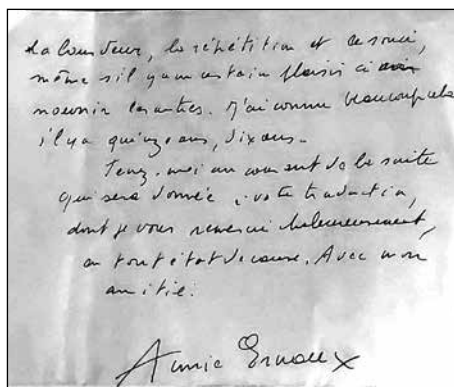 la lourdeur, la répétition et le souci,
même s'il y a un certain plaisir à
nourrir les autres. J'ai connu beaucoup cela
il y a quinze ans, dix ans.
Tenez-moi au courant de la suite
qui sera donnée à votre traduction,
dont je vous remercie chaleureusement,
en tout état de cause. Avec mon
amitié.
Annie Ernaux